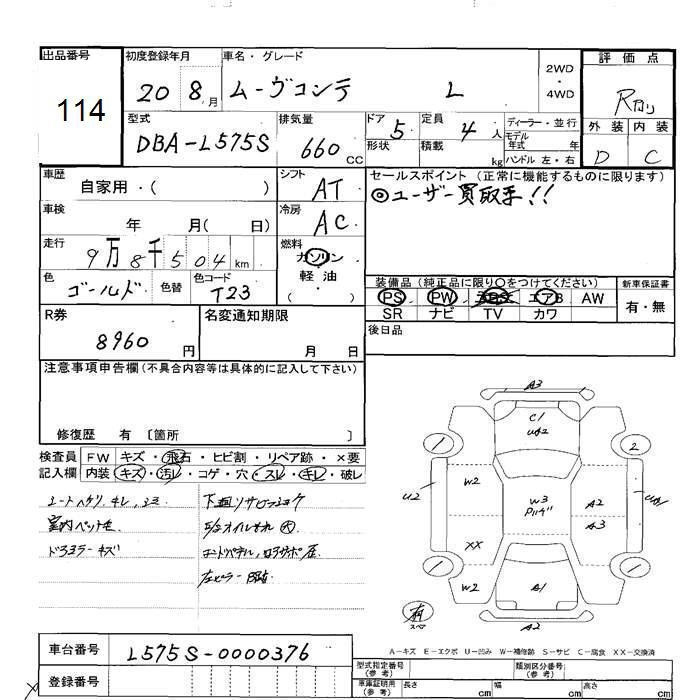 出品番号
114
初度登録年月
20 8月
車名・グレード
ムーヴコンテ L
2WD
・
4WD
評価点
外装 内装
D C
型式
DBA-L575S
排気量
660 CC
ドア 5
形状
定員 4人
積載 kg
ディーラー・並行
モデル年式 年
ハンドル 左・右
車歴
自家用・( )
シフト
AT
車検
年 月( 日)
冷房
AC
走行
9万8千504km
燃料
ガソリン
軽油
( )
色
ゴールド
色替
色コード
T23
セールスポイント (正常に機能するものに限ります)
◎ユーザー買取車!!
装備品 (純正品に限り○をつけてください)
PS PW エアB AW
SR ナビ TV カワ
新車保証書
有・無
後日品
R券
8960円
名変通知期限
月 日
注意事項申告欄(不具合内容等は具体的に記入して下さい)
修復歴 有 〔箇所 〕
検査員記入欄
FW キズ・飛石・ヒビ割・リペア跡・×要
内装 キズ・汚レ・コゲ・穴・スレ・キレ・破レ
下廻リサビ
A3
C1
U2
1
2
W2
W3
A2
A3
XX
W2
A1
1
1
A2
有
スペア
A-キズ E-エクボ U-凹み W-補修跡 S-サビ C-腐食 XX-交換済
車台番号
L575S-0000376
登録番号
型式指定番号(参考)
類別区分番号(参考)
車庫証明用(参考)
長さ cm
幅 cm
高さ cm